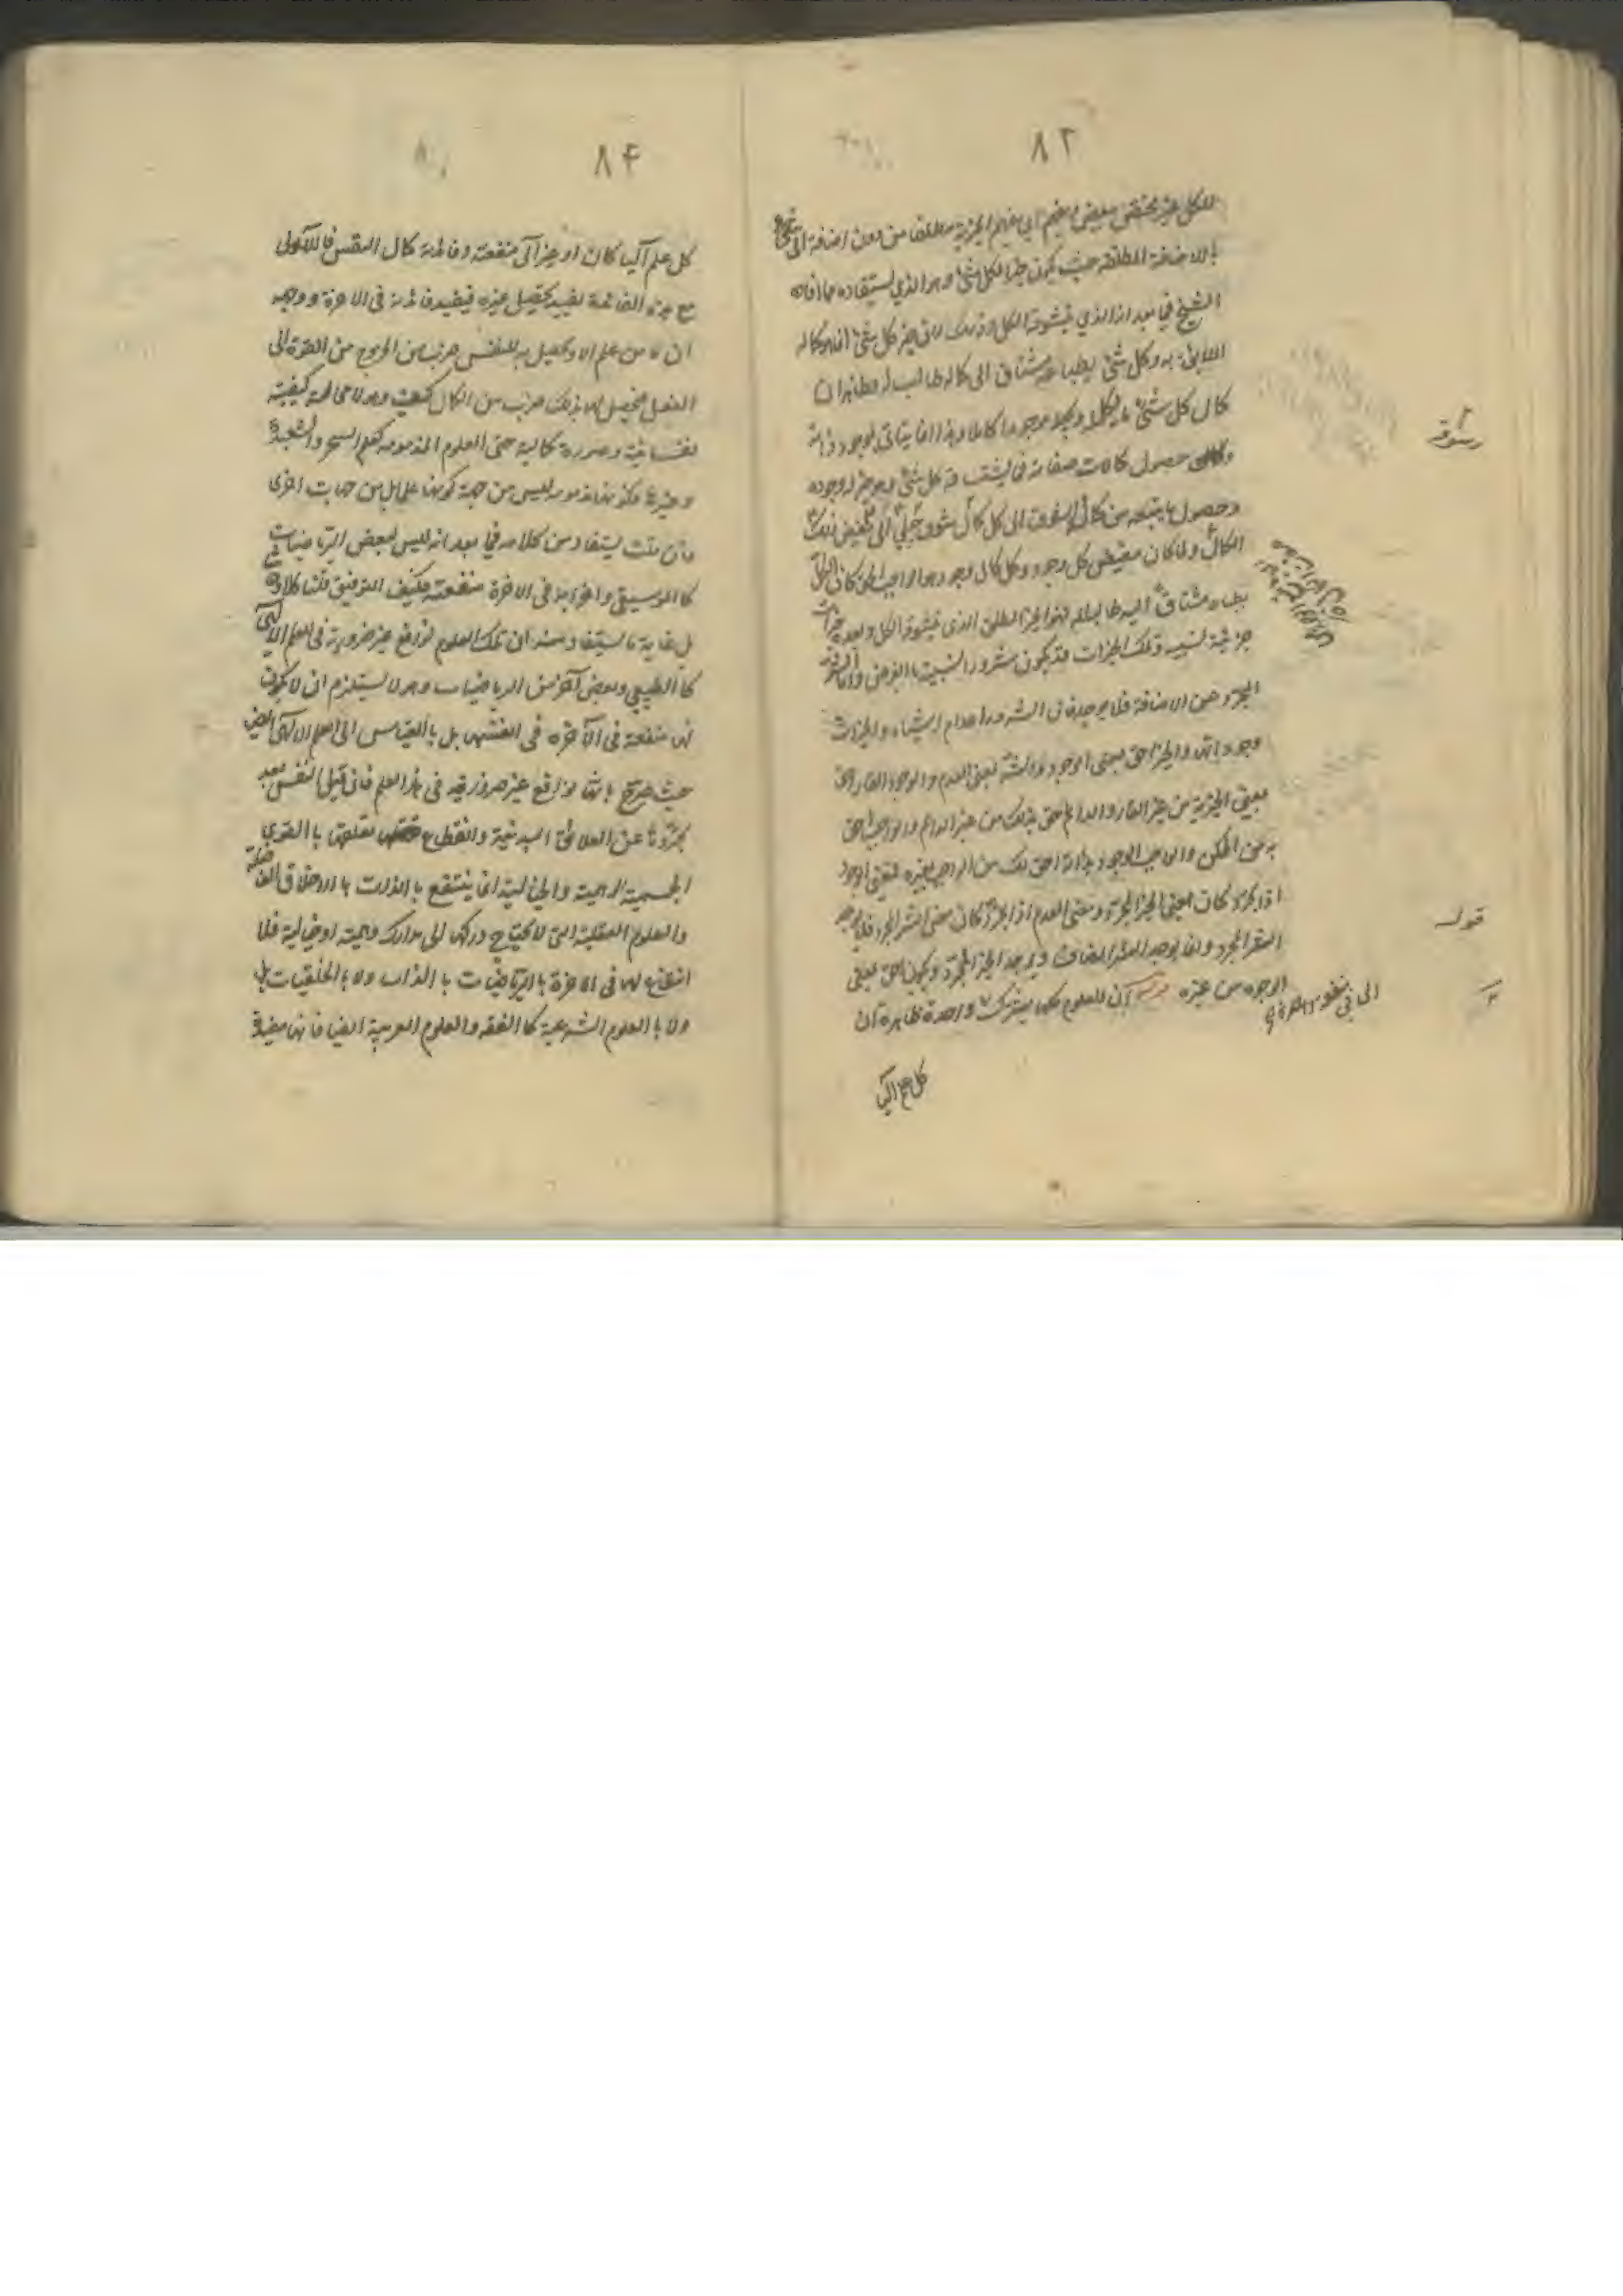 ٨٣
للكل غير مختص ببعض الخير اي بفهم الخيرية مطلقا من دون اضافة الى شئ
بالاضافة المطلقة حيث يكون خيرا لكل شئ وهو الذي يستفاد مما افاده
الشيخ فيما بعد اذ الذي يتشوقه الكل وذلك لان خير كل شئ انما هو كماله
اللايق به وكل شئ بطباعه مشتاق الى كماله طالب له وظاهر ان
كمال كل شئ ما يكمل به موجودا كاملا وهذا انما يتاتى بوجود ذاته
وحصول كمالات صفاته فما يتشوقه كل شئ وهو خير له وجوده
وحصول ما يتبعه من كمال والشوق الى كل كمال شوق جبلي الى مفيض ذلك
الكمال ولما كان مفيض كل وجود وكل كمال وجود هو الواجب الحق كان الكل
بطباعه مشتاق اليه طالبا له فهو الخير المطلق الذي يتشوقه الكل وبعده خيرات
جزئية نسبية وتلك الخيرات قد يكون شرورا لنسبية بالعرض واما الشر
المجرد عن الاضافة فلا يوجد فان الشرور اعدام اشياء والخيرات
وجوداتها والخير احق بمعنى الوجود والشر بمعنى العدم والوجود القار احق
بمعنى الخيرية من غير القار والدائم احق بذلك من غير الدائم والواجب احق
به من الممكن والواجب الوجود بذاته احق بذلك من الواجب بغيره فمعنى الوجود
اذا تجرد كان معنى الخير المجرد ومعنى العدم اذا تجرد كان معنى الشر المجرد فلا يوجد
الشر المجرد وانما يوجد الشر المضاف ويوجد الخير المجرد ويكون احق بمعنى
الوجود من غيره ان للعلوم كلها يشترك واحدة ظاهره ان
قوله
كل علم آليا
٨٤
كل علم آليا كان او غير آلى منفعته وفائدته كمال النفس فالآلى
مع هذه الفائدة يفيد تحصيل غيره فيفيد فائدته في الاخرة ووجه
ان ما من علم الا ويحصل به للنفس ضرب من الخروج من القوة الى
الفعل فيحصل لها بذلك ضرب من الكمال كيف وهو لا محالة كيفية
نفسانية وصورة كمالية حتى العلوم المذمومة كعلم السحر والشعبدة
وغيرها فكونها مذمومة ليس من جهة كونها علما بل من جهات اخرى
فان قلت يستفاد من كلامه فيما بعد انه ليس لبعض الرياضيات
كالموسيقى واضرابه في الاخرة منفعته فكيف التوفيق قلنا كلا
بل غاية ما يستفاد منه ان تلك العلوم توابع غير ضرورية في العلم الالهي
كالطبيعي وبعض آخر من الرياضيات وهو لا يستلزم ان لا يكون
لها منفعة في الآخرة في انفسها بل بالقياس الى العلم الالهى
حيث صرح بانها توابع غير ضرورية في هذا العلم فان قيل النفس بعد
تجردها عن العلائق البدنية وانقطاع تعلقها بالقوى
الجسمية الوهمية والخيالية انما ينتفع بالذات بالاخلاق الفاضلة
والعلوم العقلية التى لا يحتاج دركها الى مدارك وهمية او خيالية فلا
انتفاع لها في الاخرة بالرياضيات بالذات ولا بالخلقيات بل
ولا بالعلوم الشرعية كالفقه والعلوم العربية ايضا فانها مفيدة